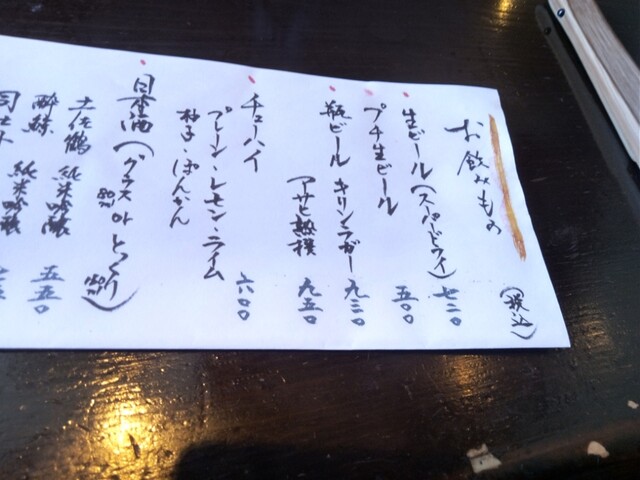 お飲みもの
(税込)
生ビール(スーパードライ) 七二〇
プチ生ビール 五〇〇
瓶ビール キリンラガー 九三〇
(アサヒ熟撰 九五〇
チューハイ 六〇〇
プレーン・レモン・ライム
柚子・ぽんかん
日本酒(グラス or とっくり)
土佐鶴
酔鯨 純米吟醸 五五〇
司牡丹 純米吟醸